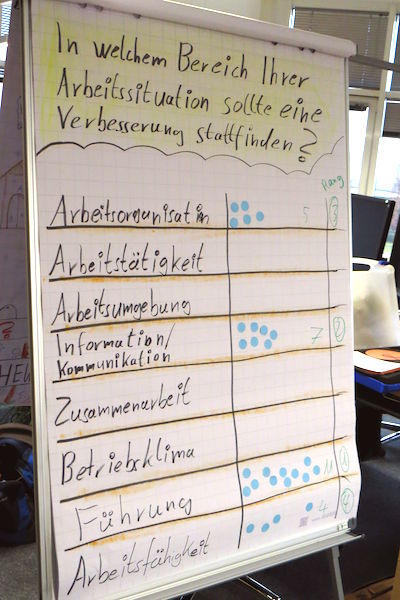 In welchem Bereich Ihrer
Arbeitssituation sollte eine
Verbesserung stattfinden?
Rang
Arbeitsorganisation 5 3
Arbeitstätigkeit
Arbeitsumgebung
Information/
Kommunikation 7 2
Zusammenarbeit
Betriebsklima
Führung 11 1
Arbeitsfähigkeit 4 4